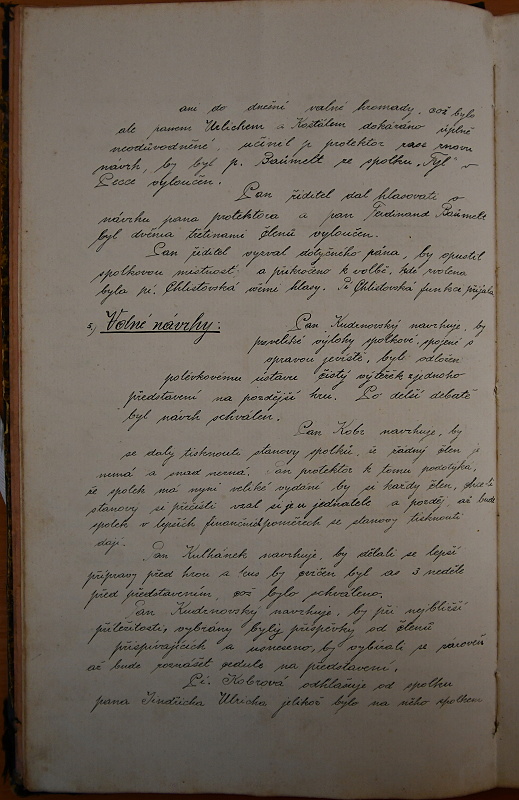 ani do dnešní valné hromady, což bylo
ale panem Urlichem a Košťálem dokázáno úplně
neodůvodněné, učinil p. protektor zase znovu
návrh, by byl p. Baümelt ze spolku „Tyl" v
Pecce vyloučen.
Pan řiditel dal hlasovati o
návrhu pana protektora a pan Ferdinand Baümelt
byl dvěmia třetinami členů vyloučen.
Pan řiditel vyzval dotyčného pána, by opustil
spolkovou místnost; a přikročeno k volbě, kde zvolena
byla pí. Chlistovská všemi hlasy. Pí Chlistovská funkce přijala
5, Volné návrhy:
Pan Kudrnovský navrhuje, by
poveliké výlohy spolkové, spojené s
opravou jeviště, bylo odložen
polévkovému ústavu čistý výtěžek z jednoho
představení na pozdější hru. Po delší debatě
byl návrh schválen.
Pan Kobr navrhuje, by
se daly tisknouti stanovy spolku, že řádný člen je
nemá a snad nezná. Pan protektor k tomu podotýká,
že spolek má nyní veliké vydání by si každý člen, chce-li
stanovy si přečísti vzal si je u jednatele a později až bude
spolek v lepších finančních poměrech se stanovy tisknouti
dají.
Pan Kulhánek navrhuje, by dělali se lepší
přípravy před hrou a kus by cvičen byl as 3 neděle
před představením, což bylo schváleno.
Pan Kudrnovský navrhuje, by při nejbližší
příležitosti, vybrány byly příspěvky od členů
přispívajících a usneseno, by vybírali se zároveň
až bude roznášet cedule na představení.
Pí. Kobrová odhlašuje od spolku
pana Jindřicha Ulricha jelikož bylo na něho spolkem